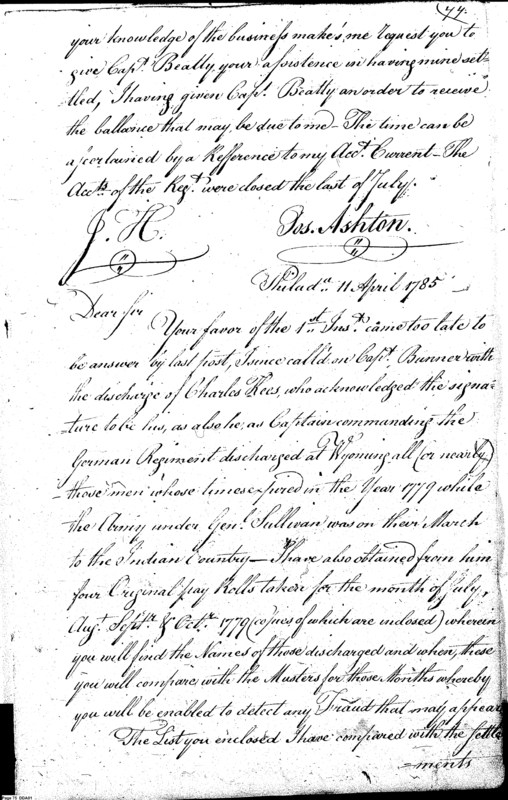 77.
your knowledge of the business makes me request you to
give Capt. Beatty your assistence in having mine set-
tled, I having given Capt. Beatty an order to receive
the ballance that may be due to me — The time can be
ascertained by a Refference to my Acct. Current — The
Accts. of the Regt. were closed the last of July.
J. H. Jos. Ashton.
Philada. 11 April 1785
Dear Sir
Your favor of the 1st. Inst. came too late to
be answer by last post, I since call'd on Capt. Bunner with
the discharge of Charles Kees, who acknowledged the signa-
ture to be his, as also he, as Captain commanding the
German Regiment discharged at Wyoming all (or nearly)
those men whose times expired in the Year 1779 while
the Army under Genl. Sullivan was on their March
to the Indian Country — I have also obtained from him
four Original pay Rolls taken for the month of July,
Augt. Septr. & Octr. 1779 (copies of which are inclosed) wherein
you will find the Names of those discharged and when, these
you will compare with the Musters for those Months whereby
you will be enabled to detect any Fraud that may appear
The List you enclosed I have compared with the settle
=ments
Page 75 DDA01